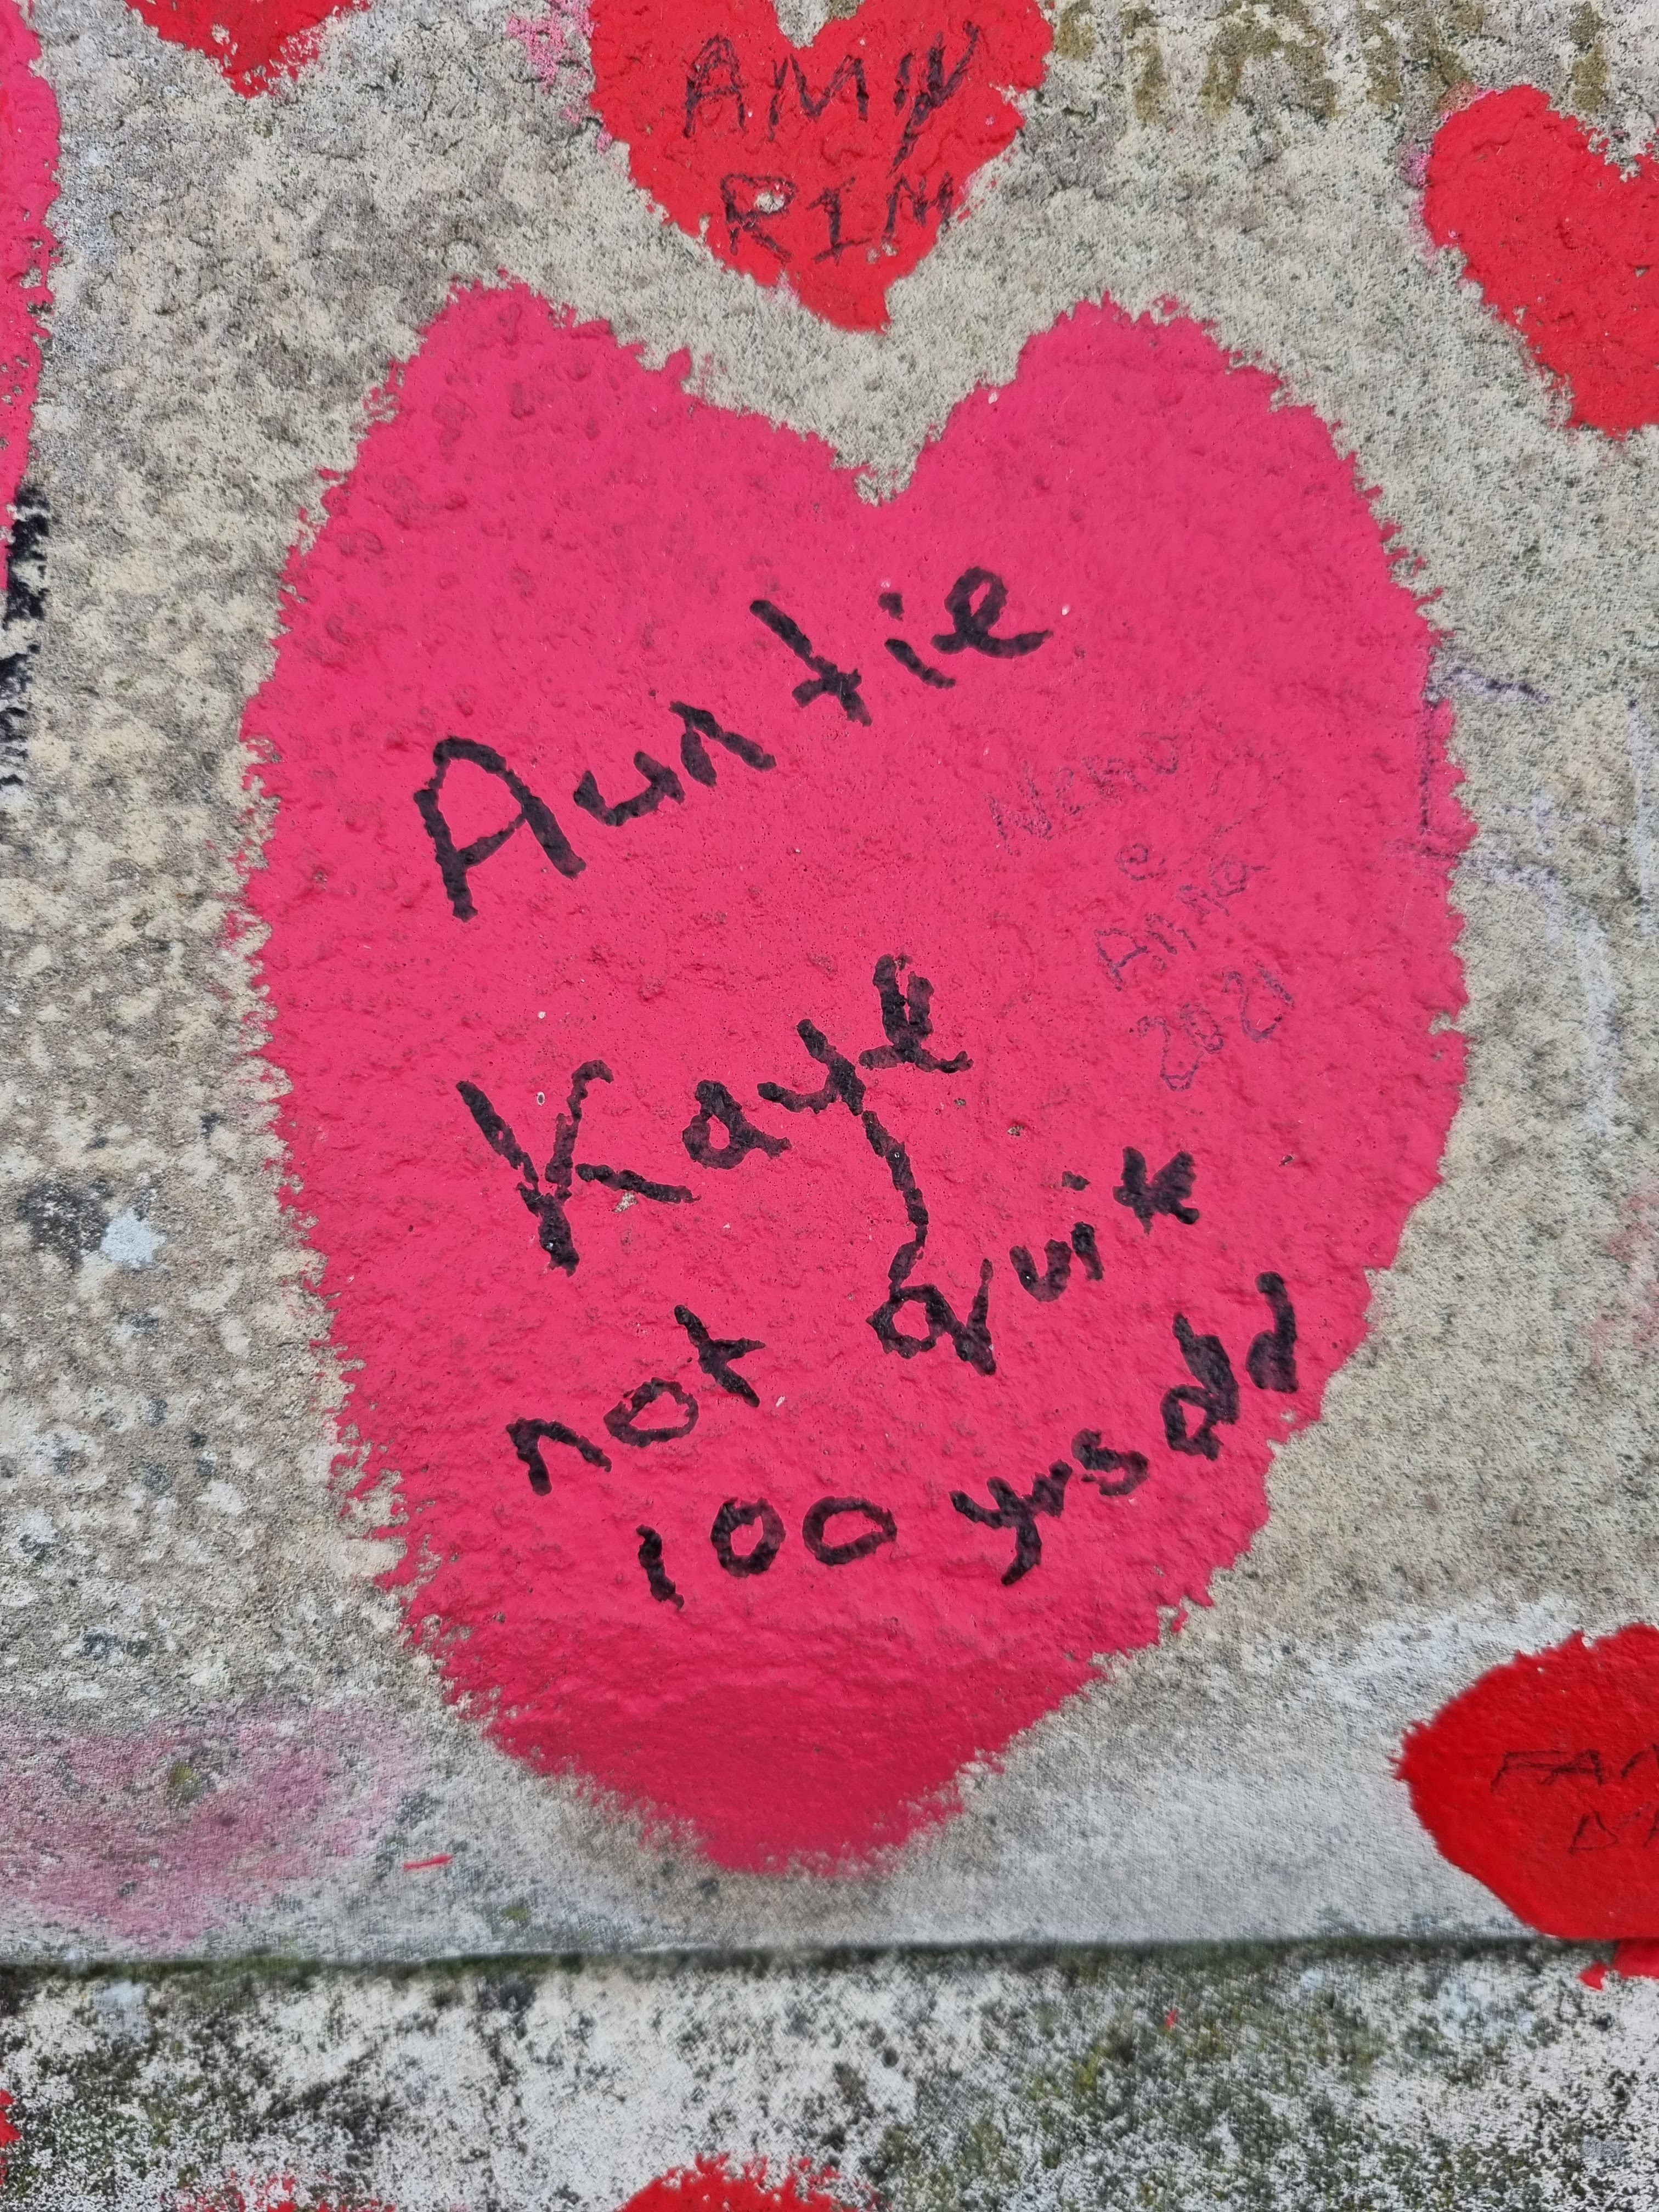 AMY
RIM
Auntie
Kaye
not quite
100 yrs old
e
Anna
2021
FA